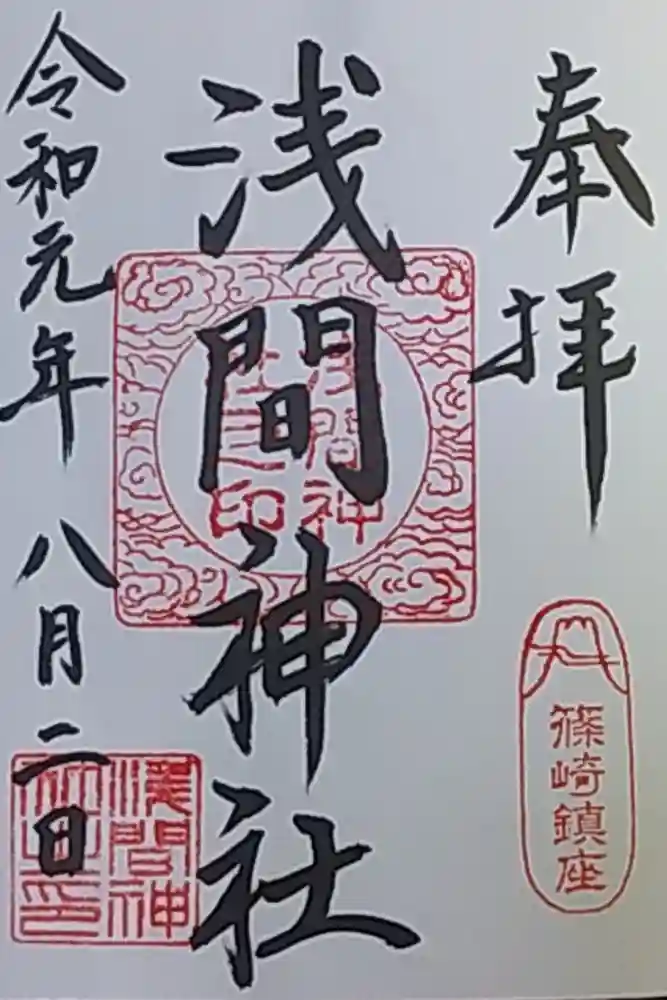 奉拝
篠崎鎮座
浅間神社
浅間神社之印
令和元年八月二日
淺間神社之印